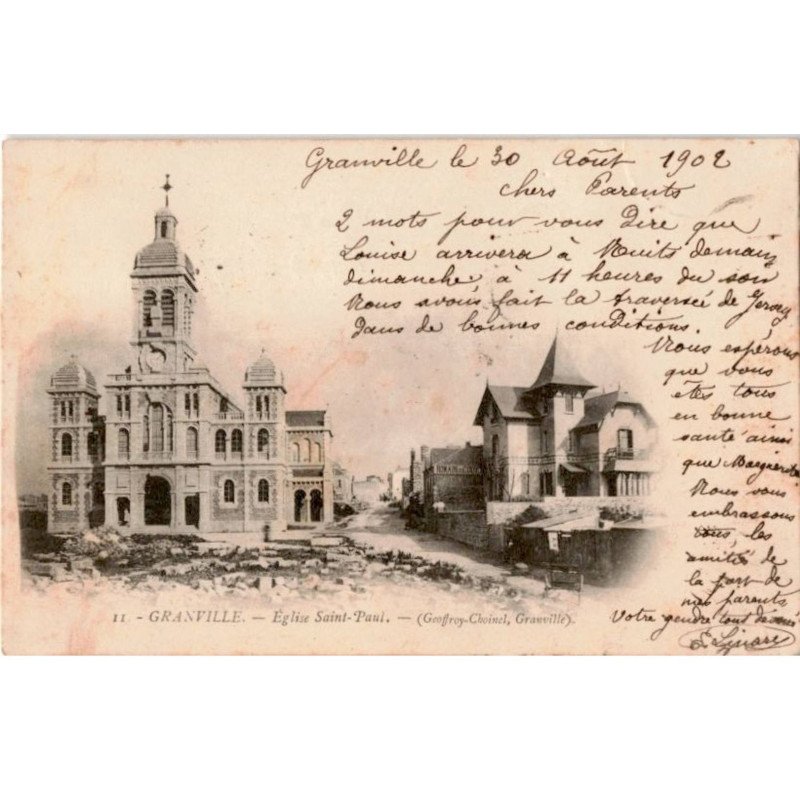 Granville le 30 Août 1902
chers Parents
2 mots pour vous Dire que
Louise arrivera à Nuits demain
dimanche à 11 heures du soir
Nous avons fait la traversée de Jersey
dans de bonnes conditions.
Nous espérons
que vous
êtes tous
en bonne
santé ainsi
que Marguerite
Nous vous
embrassons
tous, les
amitiés de
la part de
mes parents
Votre gendre tout dévoué
11 - GRANVILLE. - Église Saint-Paul. - (Geoffroy-Choinel, Granville).